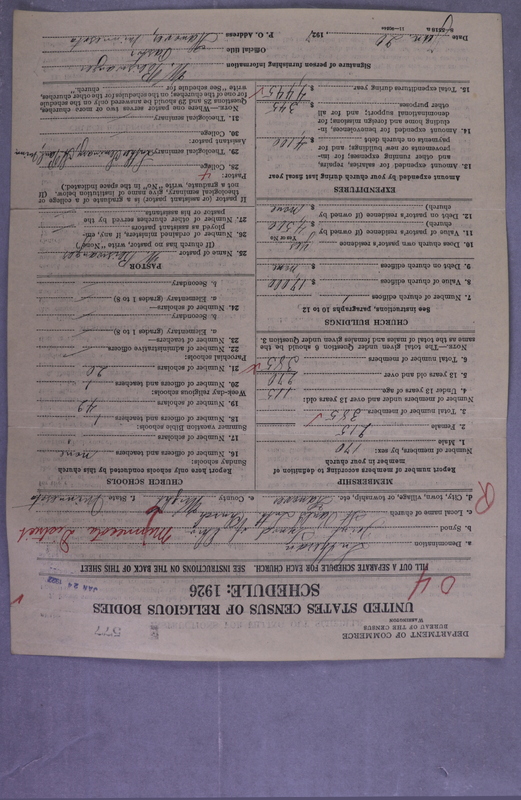 DEPARTMENT OF COMMERCE
BUREAU OF THE CENSUS
WASHINGTON
577
UNITED STATES CENSUS OF RELIGIOUS BODIES
SCHEDULE: 1926
JAN 24 1927
04
FILL OUT A SEPARATE SCHEDULE FOR EACH CHURCH. SEE INSTRUCTIONS ON THE BACK OF THIS SHEET
a. Denomination Lutheran
b. Synod Joint Synod of Ohio
Minnesota District
c. Local name of church St. Pauls Luth. Church
d. City, town, village, or township, etc. Hanover e. County Wright f. State Minnesota
MEMBERSHIP
Report number of members according to definition of member in your church
Number of members, by sex:
1. Male 170
2. Female 215
3. Total number of members 385
Number of members under and over 13 years old:
4. Under 13 years of age 115
5. 13 years old and over 270
6. Total number of members 385
NOTE.—The total given under Question 6 should be the same as the total of males and females given under Question 3.
CHURCH BUILDINGS
See instructions, paragraphs 10 to 12
7. Number of church edifices 1
8. Value of church edifices $
9. Debt on church edifices $ none
10. Does church own pastor's residence yes
Yes or No
11. Value of pastor's residence (if owned by church) $ 4,500
12. Debt on pastor's residence (if owned by church) $ none
EXPENDITURES
Amount expended by your church during last fiscal year
13. Amount expended for salaries, repairs, and other running expenses; for improvements or new building; and for payments on church debt $ 4,100
14. Amount expended for benevolences, including home and foreign missions; for denominational support; and for all other purposes $ 345
15. Total expenditures during year $ 4,445
CHURCH SCHOOLS
Report here only schools conducted by this church
Sunday schools:
16. Number of officers and teachers none
17. Number of scholars
Summer vacation Bible schools:
18. Number of officers and teachers 1
19. Number of scholars 42
Week-day religious schools:
20. Number of officers and teachers 1
21. Number of scholars 20
Parochial schools:
22. Number of administrative officers
23. Number of teachers—
a. Elementary (grades 1 to 8)
b. Secondary
24. Number of scholars—
a. Elementary (grades 1 to 8)
b. Secondary
PASTOR
25. Name of pastor
(If church has no pastor, write "None")
26. Number of ordained ministers, if any, employed as assistant pastors
27. Number of other churches served by the pastor or his assistants
If pastor (or assistant pastor) is a graduate of a college or theological seminary, give name of institution below. (If not a graduate, write "No" in the space indicated.)
Pastor:
28. College
29. Theological seminary Luther Seminary, St. Paul, Minn
Assistant pastor:
30. College
31. Theological seminary
NOTE.—Where one pastor serves two or more churches, Questions 28 and 29 should be answered only on the schedule for one of the churches; on the schedules for the other churches, write "See schedule for church."
Signature of person furnishing information
Official title Pastor
Date Jan. 20, 1927. P. O. Address Hanover, Minnesota